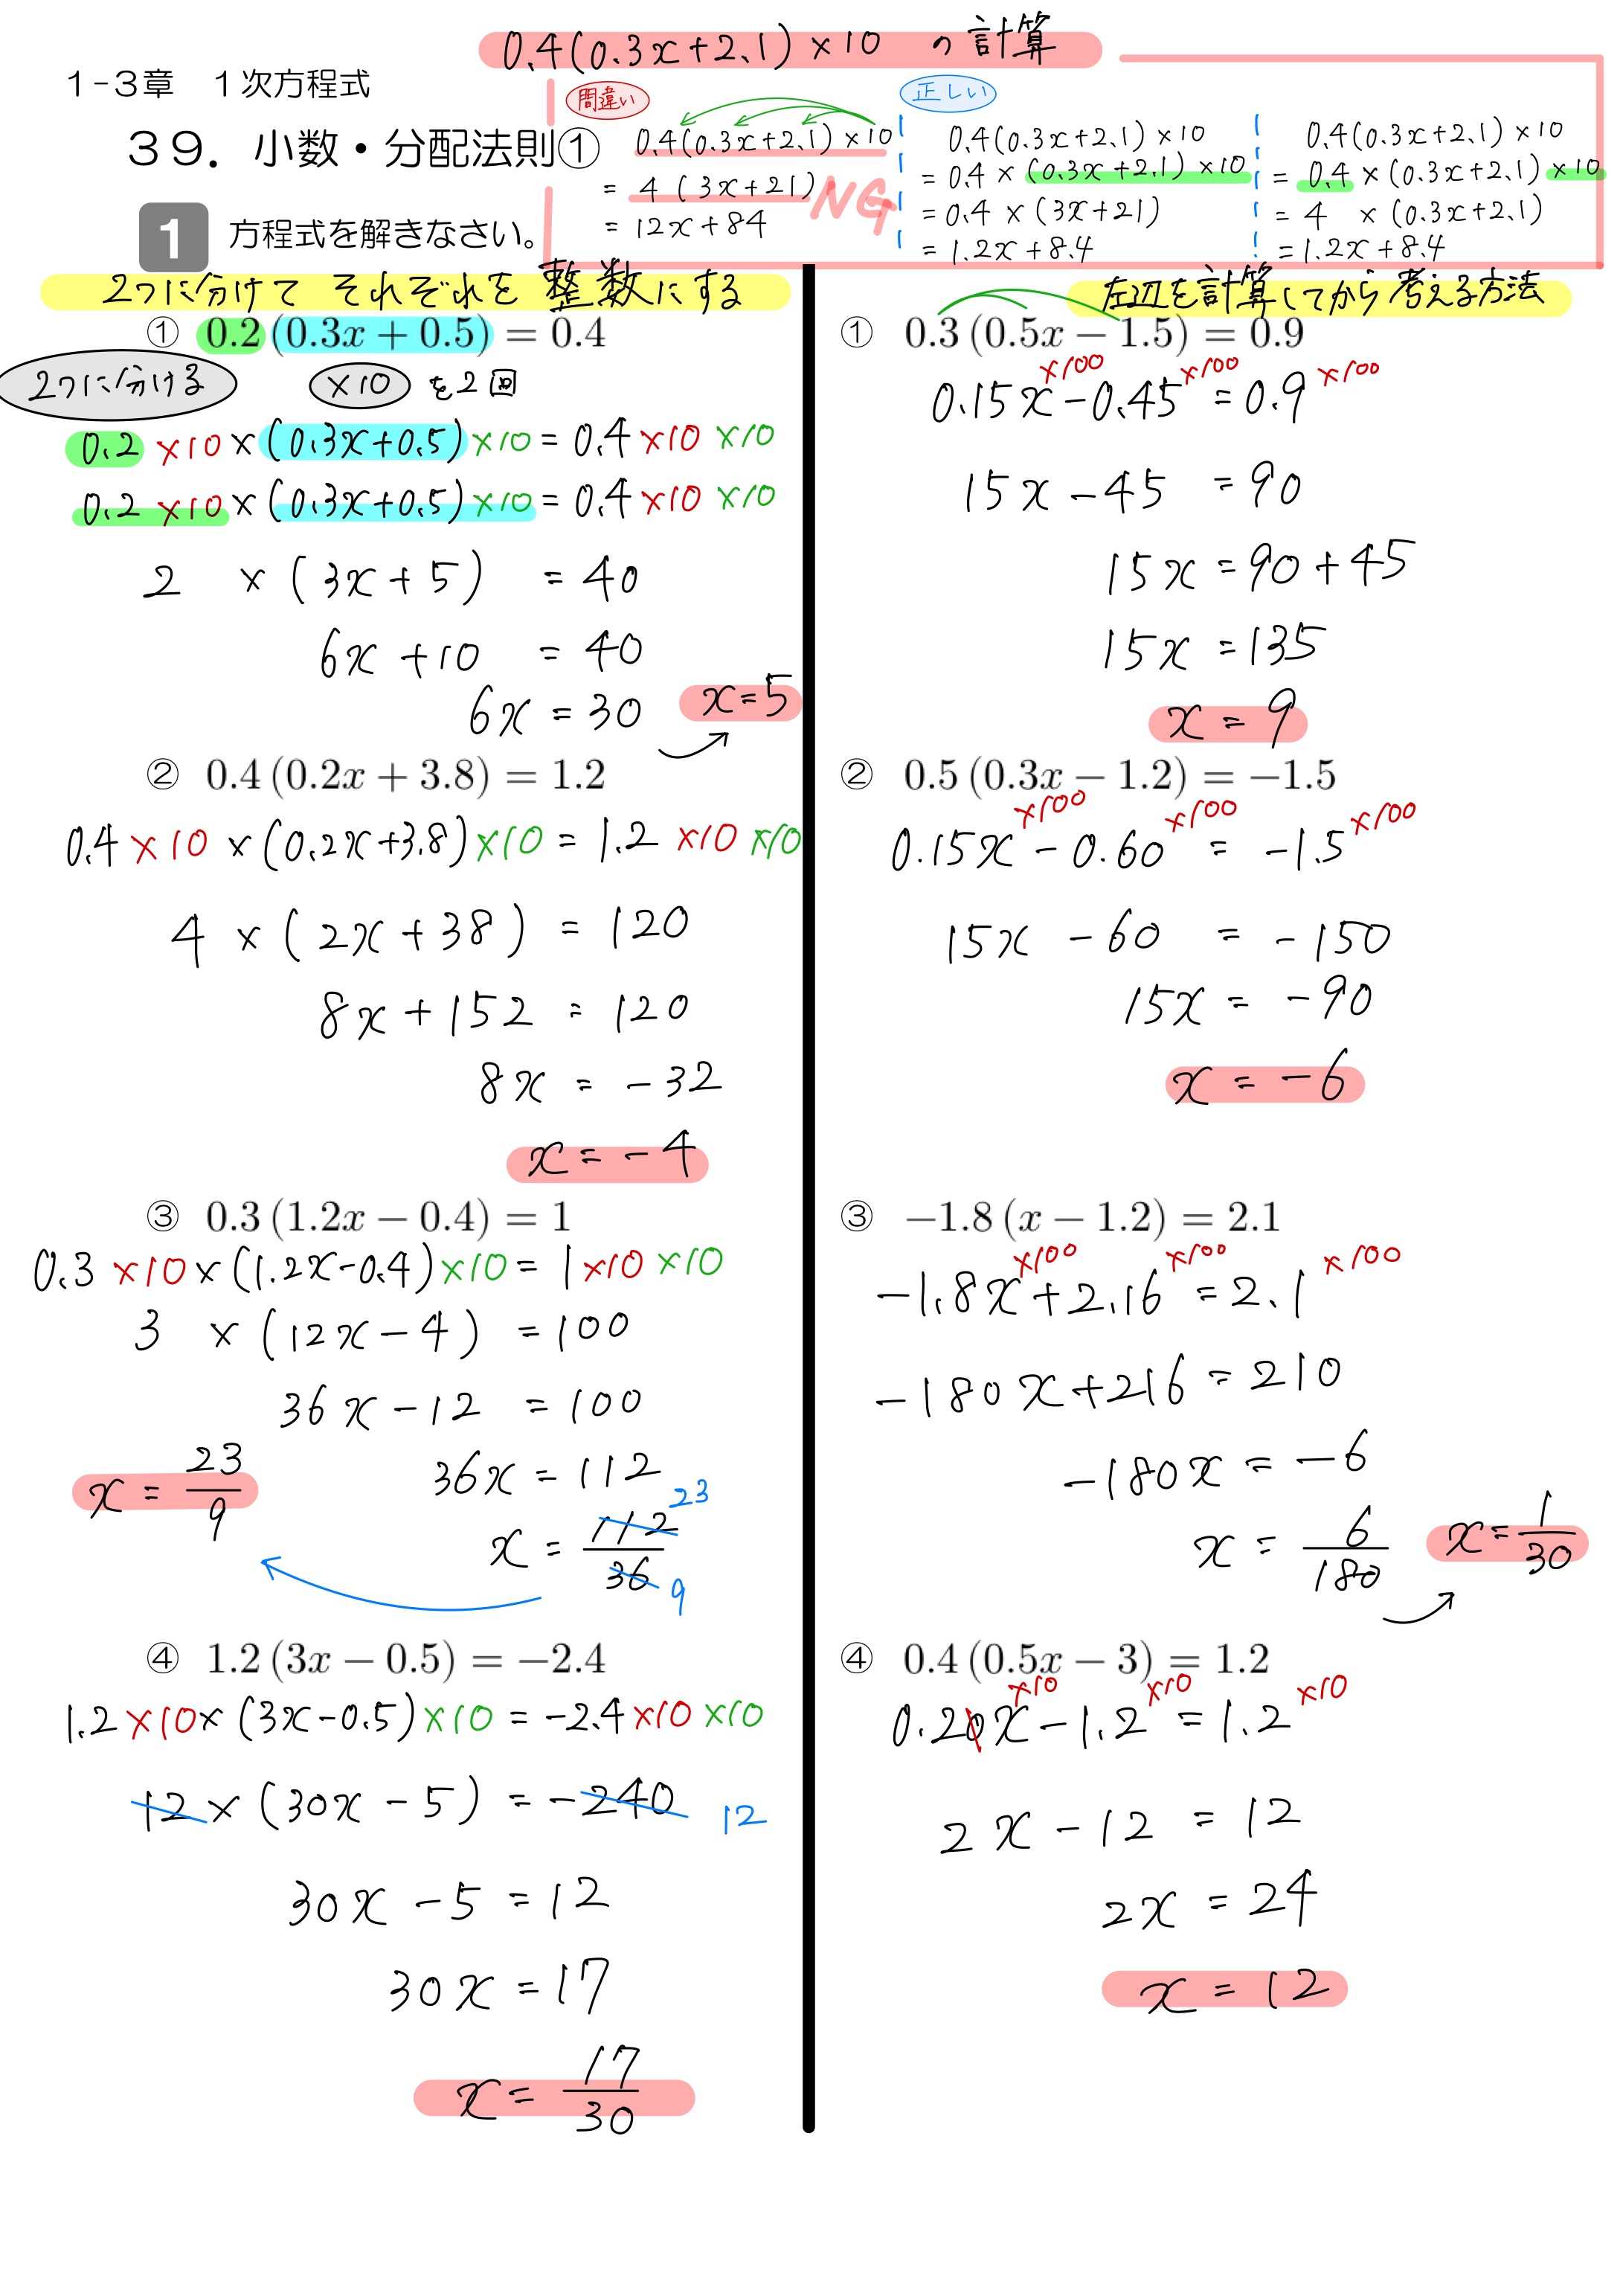 0.4(0.3x+2.1)×10 の計算
1-3章 1次方程式
39. 小数・分配法則①
1 方程式を解きなさい。
間違い
0.4(0.3x+2.1)×10
= 4(3x+21)
= 12x+84
NG
正しい
0.4(0.3x+2.1)×10
= 0.4×(0.3x+2.1)×10
= 0.4×(3x+21)
= 1.2x+8.4
0.4(0.3x+2.1)×10
= 0.4×(0.3x+2.1)×10
= 4 ×(0.3x+2.1)
= 1.2x+8.4
2つに分けて それぞれを 整数にする
① 0.2(0.3x+0.5)=0.4
2つに分ける ×10 を2回
0.2×10×(0.3x+0.5)×10=0.4×10×10
0.2×10×(0.3x+0.5)×10=0.4×10×10
2 ×(3x+5) =40
6x+10 =40
6x=30
x=5
② 0.4(0.2x+3.8)=1.2
0.4×10×(0.2x+3.8)×10=1.2×10×10
4×(2x+38)=120
8x+152=120
8x=-32
x=-4
③ 0.3(1.2x-0.4)=1
0.3×10×(1.2x-0.4)×10=1×10×10
3 ×(12x-4) =100
36x-12 =100
36x=112
x=112/36
23
9
x=23/9
④ 1.2(3x-0.5)=-2.4
1.2×10×(3x-0.5)×10=-2.4×10×10
12×(30x-5)=-240 12
30x-5=12
30x=17
x=17/30
左辺を計算してから考える方法
① 0.3(0.5x-1.5)=0.9
×100 ×100 ×100
0.15x-0.45=0.9
15x-45 =90
15x=90+45
15x=135
x=9
② 0.5(0.3x-1.2)=-1.5
×100 ×100 ×100
0.15x-0.60=-1.5
15x-60 =-150
15x=-90
x=-6
③ -1.8(x-1.2)=2.1
×100 ×100 ×100
-1.8x+2.16=2.1
-180x+216=210
-180x=-6
x=6/180
x=1/30
④ 0.4(0.5x-3)=1.2
×10 ×10 ×10
0.20x-1.2=1.2
2x-12=12
2x=24
x=12